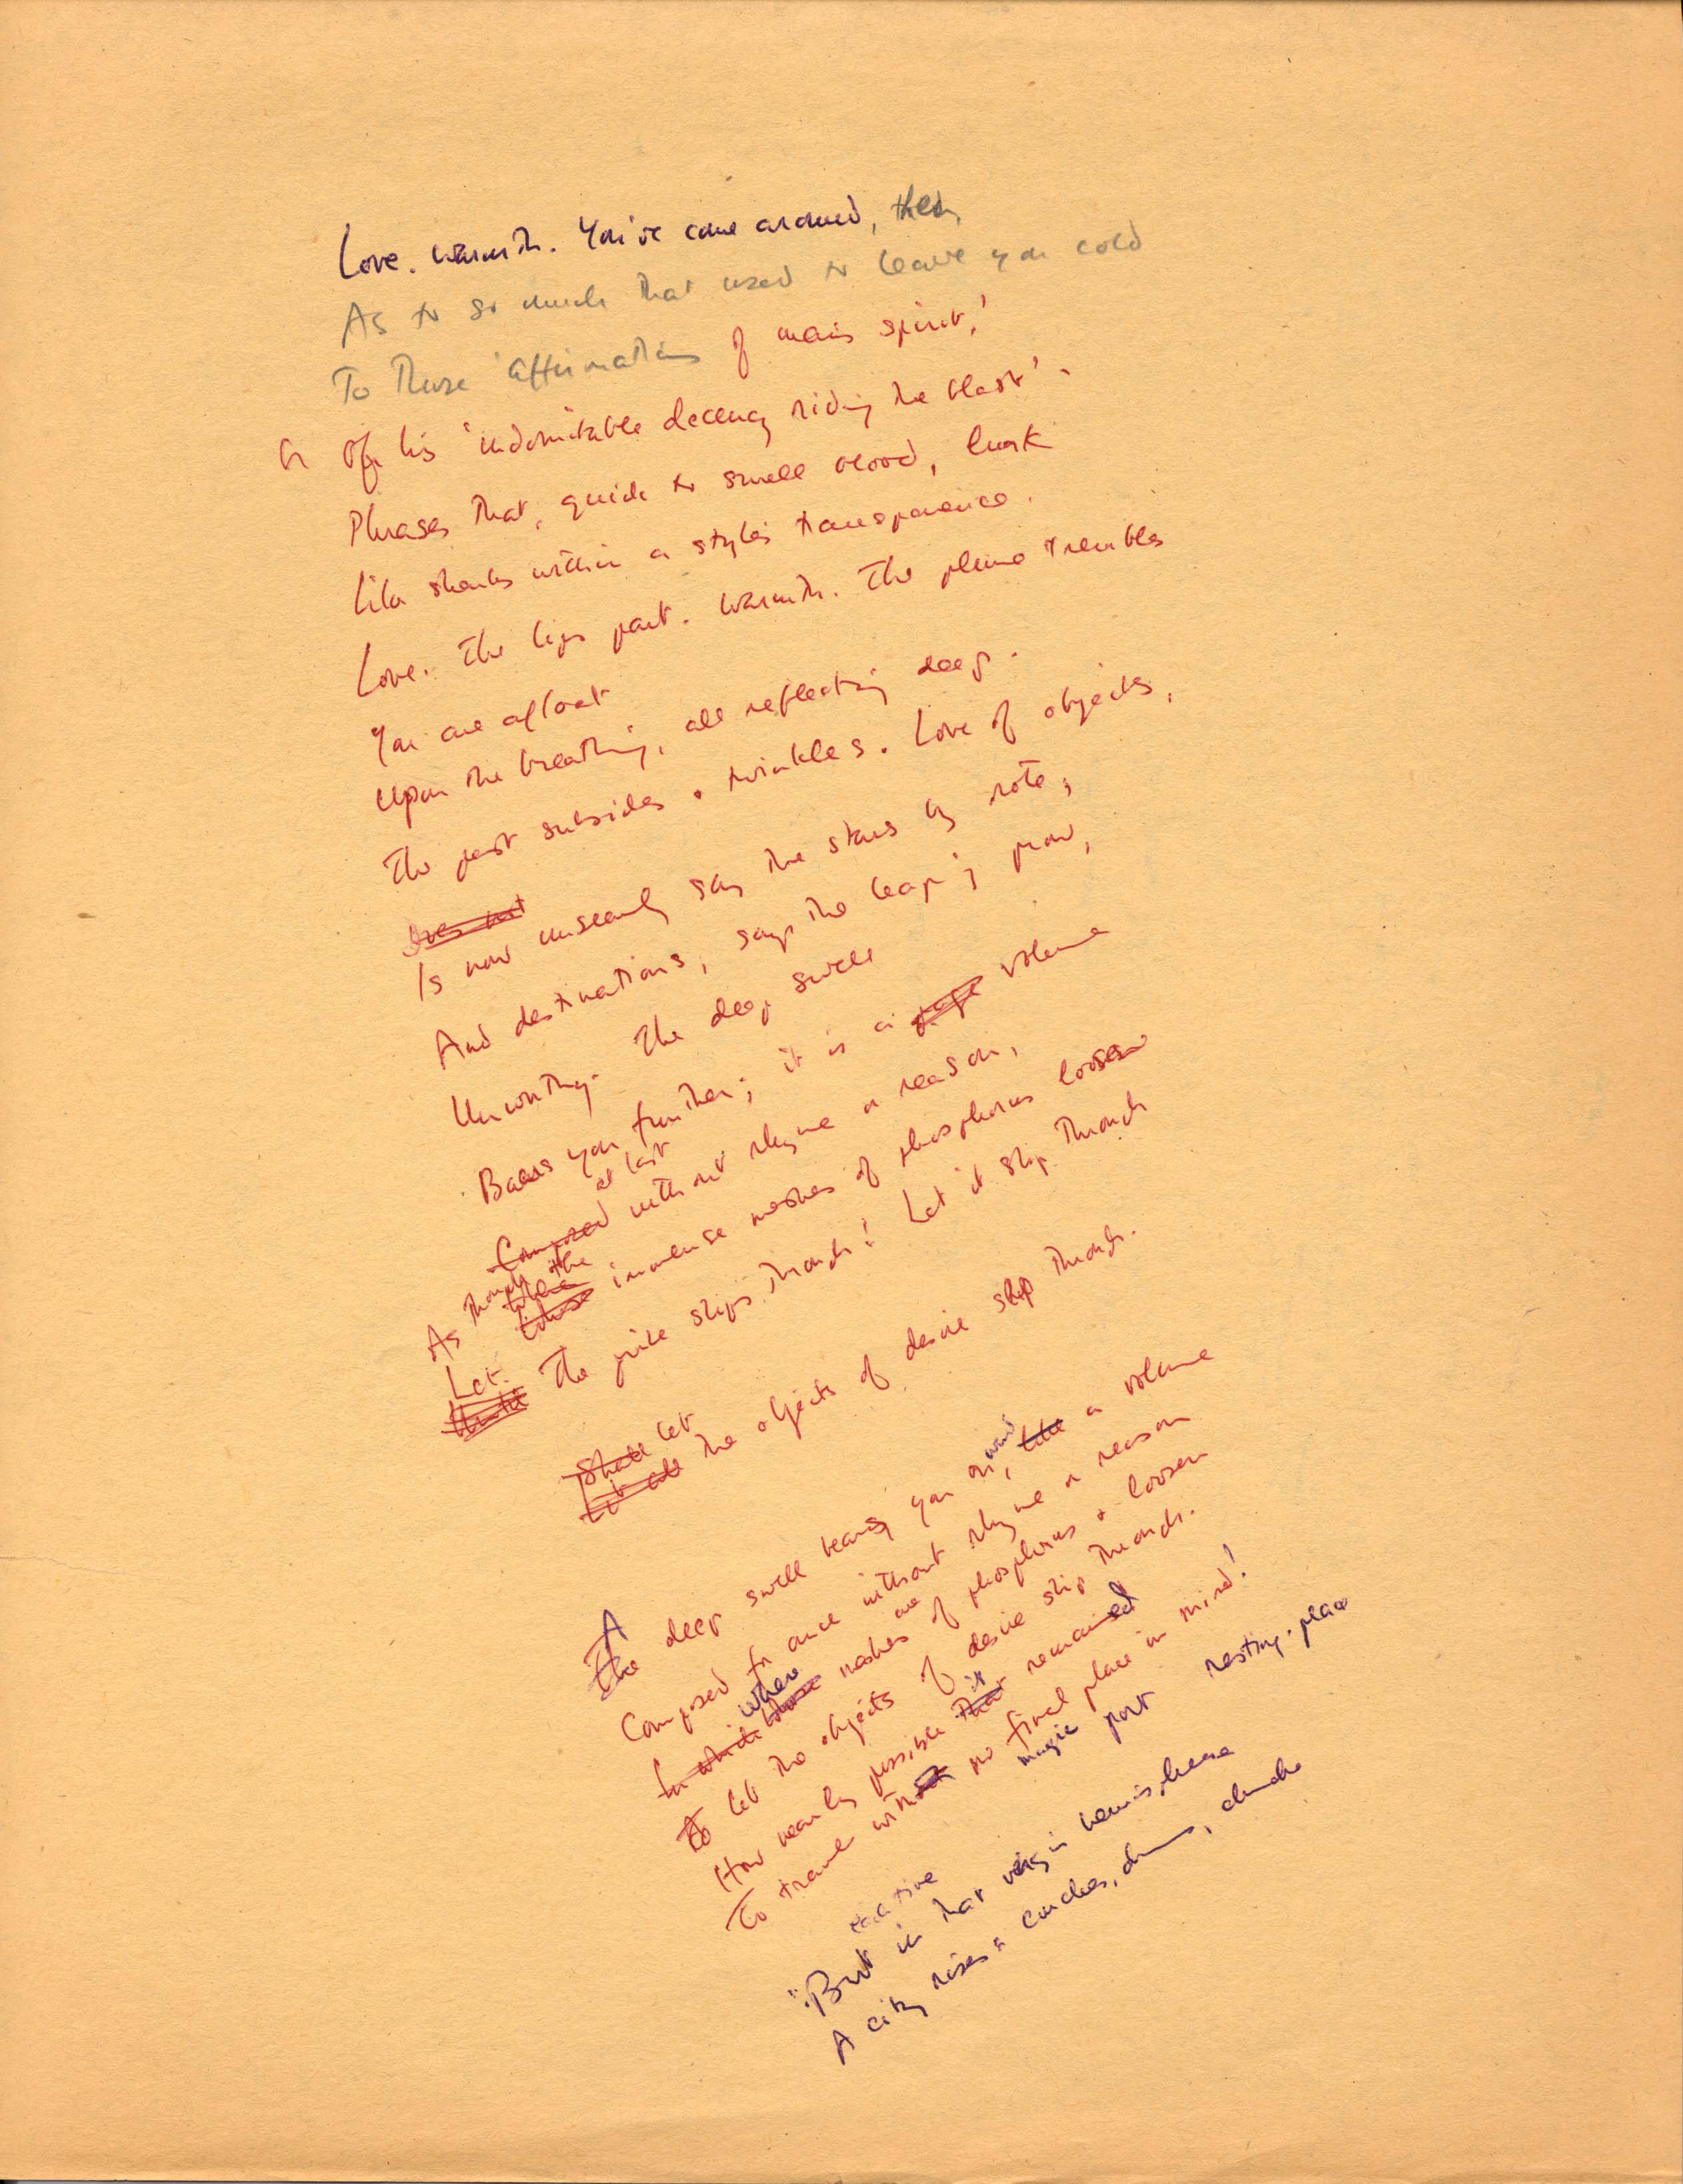 Love. Warmth. You've come around, then,
As to so much that used to leave you cold
To those 'affirmations of man's spirit,'
Or Of his 'indomitable decency riding the blast'.
Phrases that, quick to smell blood, lurk
Like sharks within a style's transparence.
Love. The lips part. Warmth. The plume trembles
You are afloat
Upon the breathing, all reflecting deep.
The past subsides + twinkles. Love of objects,
Does not
Is now unseamly say the stars by rote;
And destinations, says the leaping prow,
Unworthy. The deep swell
Bears you further; it is a page volume
at last
Composed without rhyme or reason,
As though the
where
whose immense meshes of phosphorus loosen
Let
Until The prize slips through! Let it slip through
Shall let
Let all the objects of desire slip through.
A
The deep swell bearing you onward, like a volume
Composed for once without rhyme or reason
where are
In which whose meshes of phosphorus + loosen
To let the objects of desire slip through.
it
How nearly possible that remained
To travel without no final place in mind!
magic port resting-place
"But in that virgin hemisphere
A city rises: conches, drums, churche